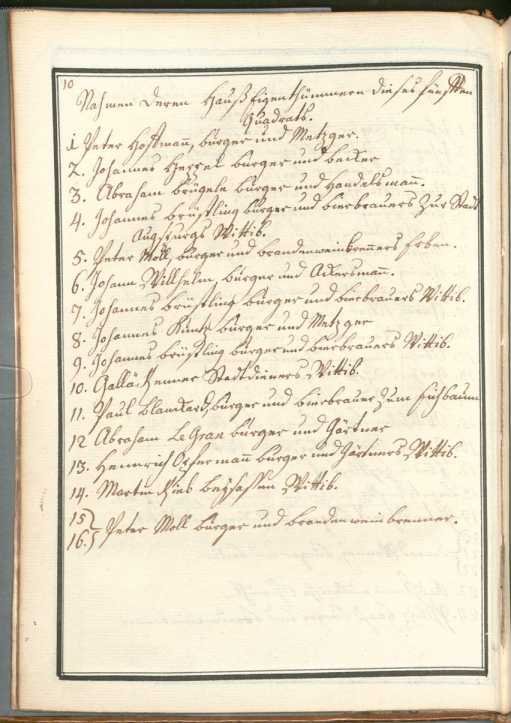 10
Nahmen deren Hauß Eigenthümmern dieses fünften
Quadrats.
1 Peter Hoffmann, burger und Metzger.
2. Johannes Herzel burger und becker
3. Abraham brügele burger und Handelsmann.
4. Johannes brüstling burger und bierbrauers zur Stadt
Augspurgs Wittib.
5. Peter Moll, burger und brandenweinbrenners Erben.
6. Johann Willhelm burger und Ackersmann.
7. Johannes brüstling burger und bierbrauers Wittib.
8. Johannes Küntz burger und Metzger
9. Johannes brüstling burger und bierbrauers Wittib.
10. Stadtdieners Wittib.
11. Paul blanckard, burger und bierbrauer zum
12 Abraham Le Gran burger und Gärtner
13. Hennrich Ackermann burger und Gärtners Wittib.
14. Martin Ries beysassen Wittib.
15)
16.) Peter Moll burger und brandenweinbrenner.